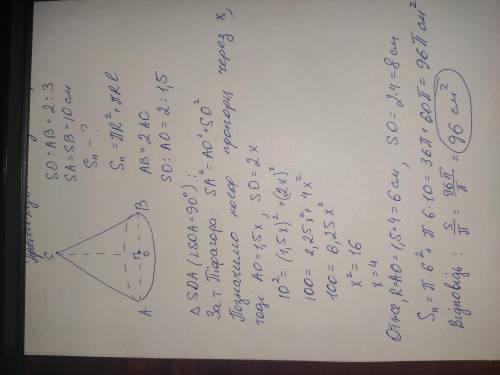 S
A
B
O
R
SO : AB = 2 : 3
SA = SB = 10 см
Sп - ?
Sп = πR² + πRl
AB = 2 AO
SO : AO = 2 : 1,5
△ SOA (∠SOA = 90°) :
За т. Піфагора: SA² = AO² + SO²
Позначимо коеф. пропорц. через x,
тоді: AO = 1,5x, SO = 2x
10² = (1,5x)² + (2x)²
100 = 2,25x² + 4x²
100 = 6,25x²
x² = 16
x = 4
Отже, R = AO = 1,5 · 4 = 6 см; SO = 2 · 4 = 8 см
Sп = π · 6² + π · 6 · 10 = 36π + 60π = 96π см²
Відповідь : S/π = 96π/π = 96 см²